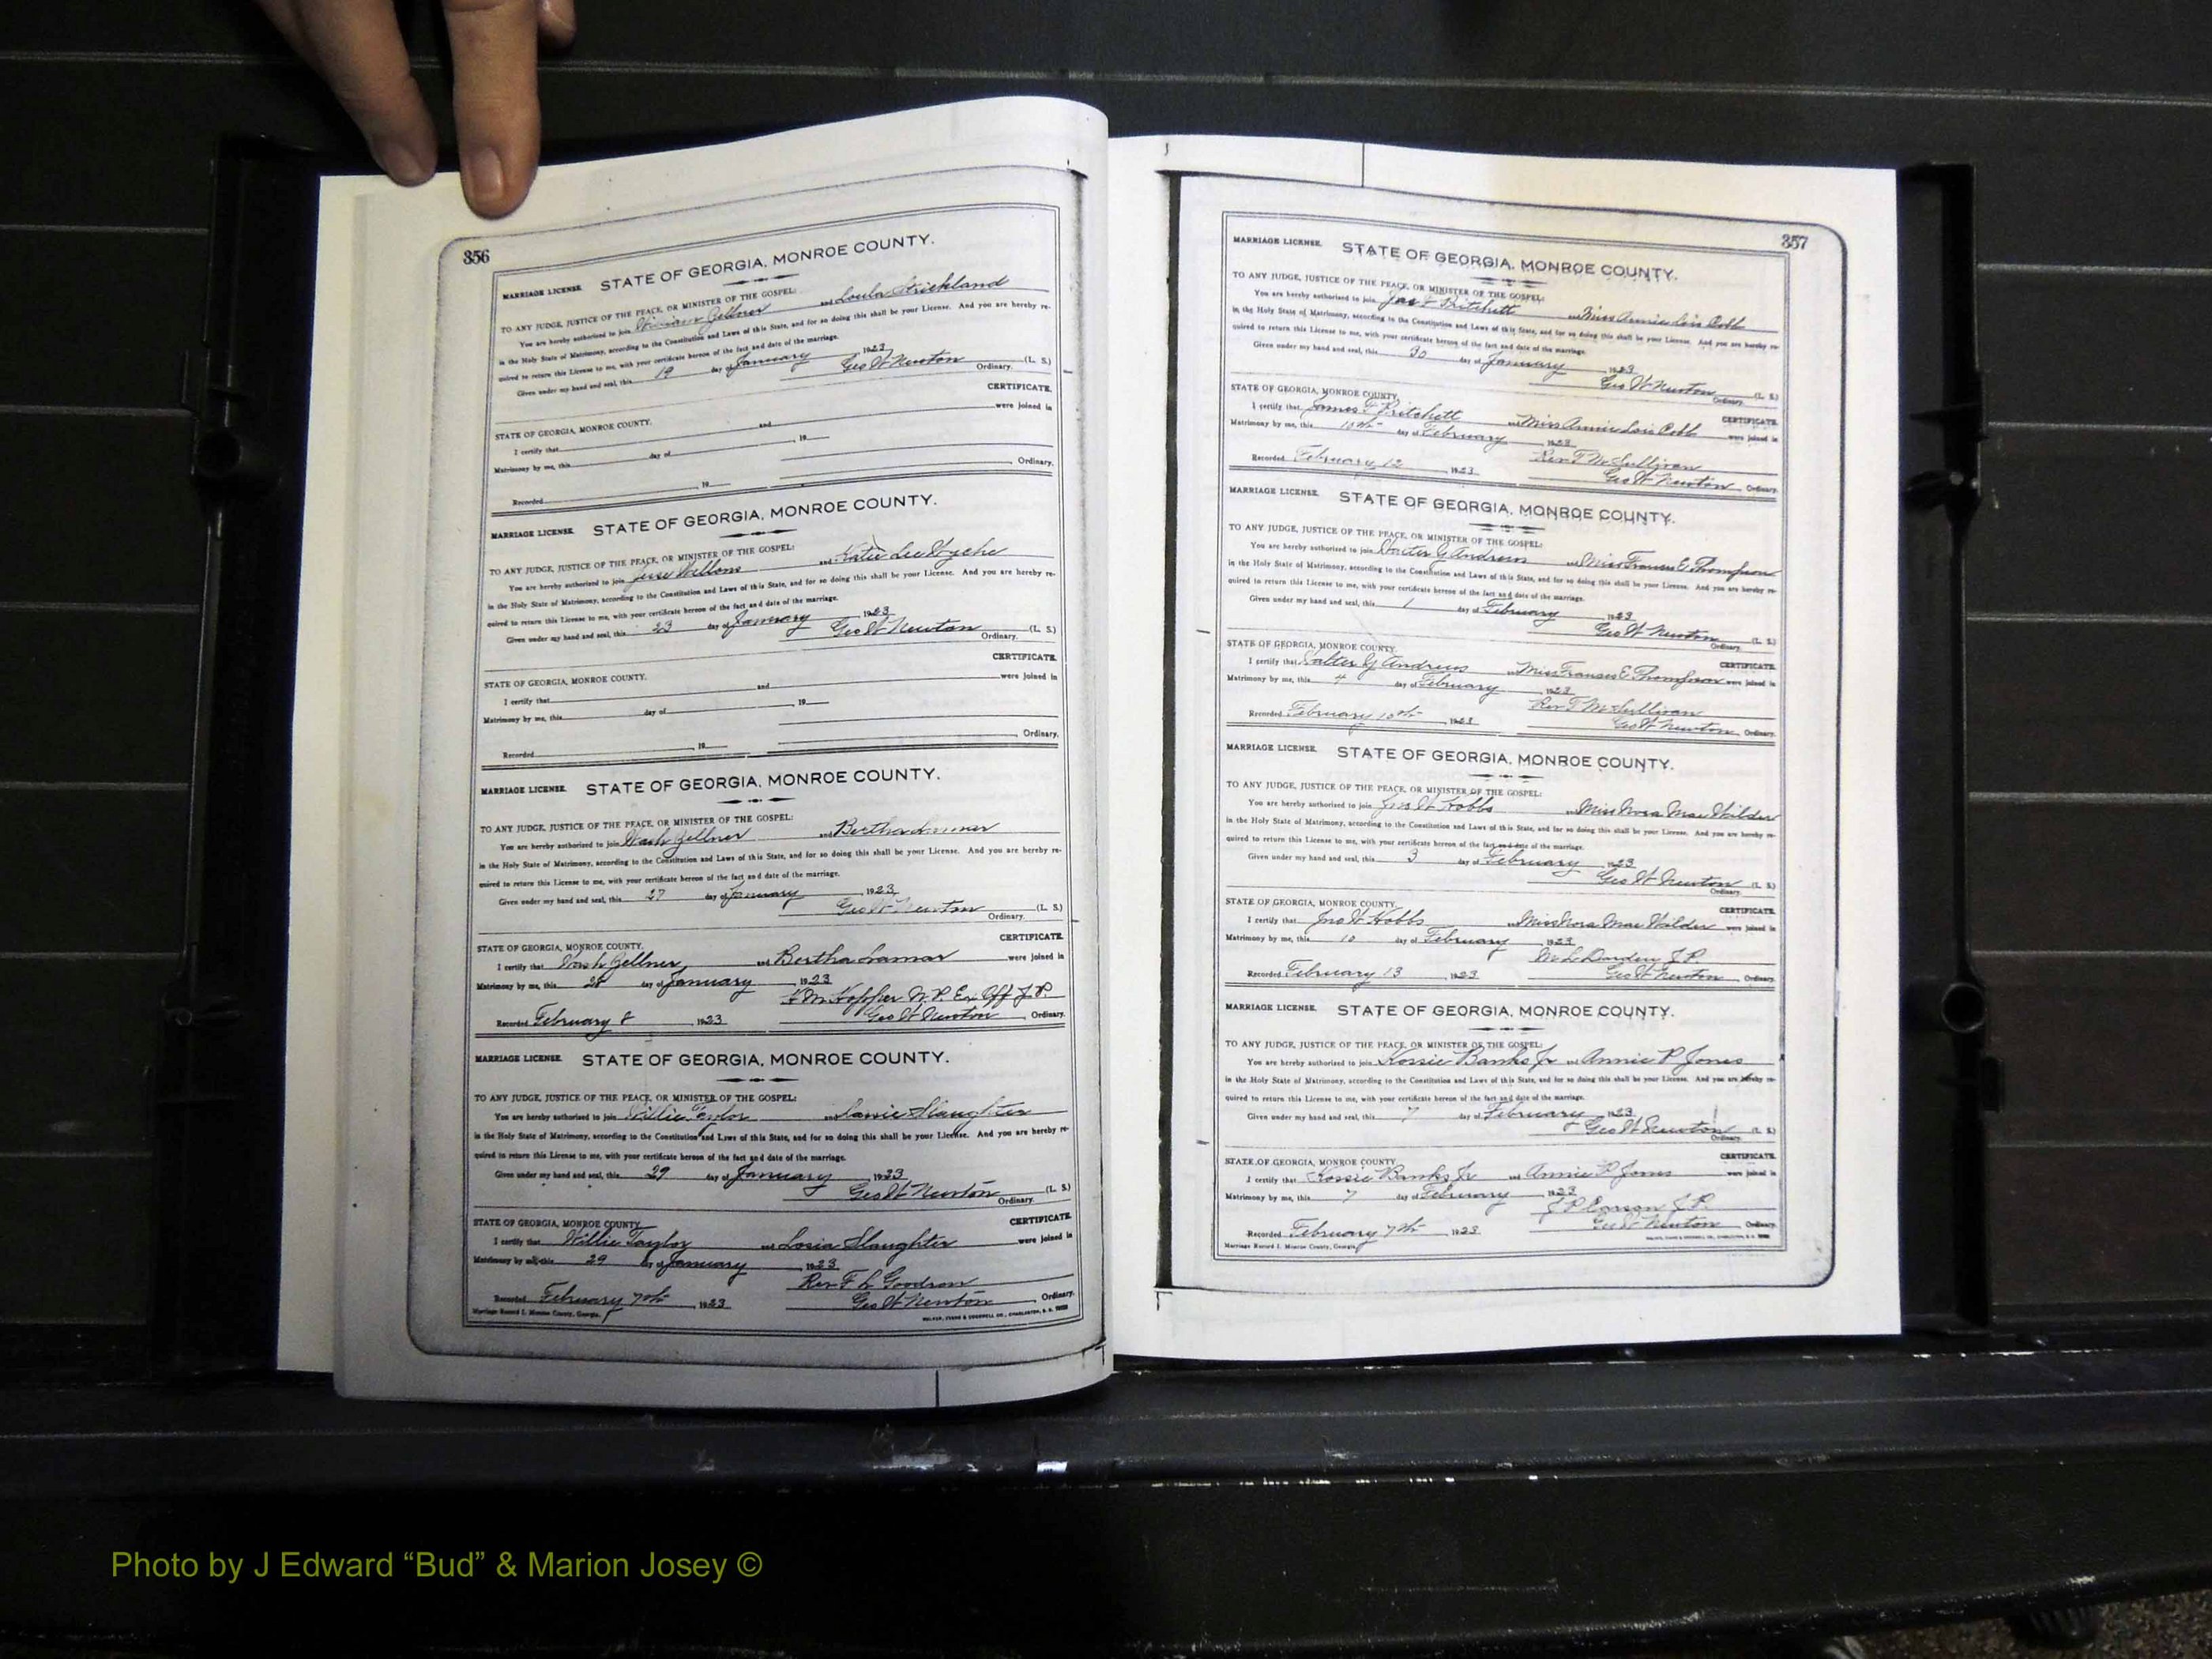 356
MARRIAGE LICENSE. STATE OF GEORGIA, MONROE COUNTY.
TO ANY JUDGE, JUSTICE OF THE PEACE, OR MINISTER OF THE GOSPEL:
You are hereby authorized to join William Zellner and Loula Strickland
in the Holy State of Matrimony, according to the Constitution and Laws of this State, and for so doing this shall be your License. And you are hereby re-
quired to return this License to me, with your certificate hereon of the fact and date of the marriage.
Given under my hand and seal, this 19 day of January 1923
Geo W Newton (L. S.)
Ordinary.
CERTIFICATE.
STATE OF GEORGIA, MONROE COUNTY.
I certify that and were joined in
Matrimony by me, this day of , 19
Recorded , 19 Ordinary.
MARRIAGE LICENSE. STATE OF GEORGIA, MONROE COUNTY.
TO ANY JUDGE, JUSTICE OF THE PEACE, OR MINISTER OF THE GOSPEL:
You are hereby authorized to join Jesse Wellons and Katie Lee Wyche
in the Holy State of Matrimony, according to the Constitution and Laws of this State, and for so doing this shall be your License. And you are hereby re-
quired to return this License to me, with your certificate hereon of the fact and date of the marriage.
Given under my hand and seal, this 23 day of January , 1923
Geo W Newton (L. S.)
Ordinary.
CERTIFICATE.
STATE OF GEORGIA, MONROE COUNTY.
I certify that and were joined in
Matrimony by me, this day of , 19
Recorded , 19 Ordinary.
MARRIAGE LICENSE. STATE OF GEORGIA, MONROE COUNTY.
TO ANY JUDGE, JUSTICE OF THE PEACE, OR MINISTER OF THE GOSPEL:
You are hereby authorized to join Wash Zellner and Bertha Lamar
in the Holy State of Matrimony, according to the Constitution and Laws of this State, and for so doing this shall be your License. And you are hereby re-
quired to return this License to me, with your certificate hereon of the fact and date of the marriage.
Given under my hand and seal, this 27 day of January , 1923
Geo W Newton (L. S.)
Ordinary.
CERTIFICATE.
STATE OF GEORGIA, MONROE COUNTY.
I certify that Wash Zellner and Bertha Lamar were joined in
Matrimony by me, this 28 day of January , 1923
H M Hopper N. P. Ex Off J. P.
Recorded February 8 , 1923 Geo W Newton , Ordinary.
MARRIAGE LICENSE. STATE OF GEORGIA, MONROE COUNTY.
TO ANY JUDGE, JUSTICE OF THE PEACE, OR MINISTER OF THE GOSPEL:
You are hereby authorized to join Willie Taylor and Slaughter
in the Holy State of Matrimony, according to the Constitution and Laws of this State, and for so doing this shall be your License. And you are hereby re-
quired to return this License to me, with your certificate hereon of the fact and date of the marriage.
Given under my hand and seal, this 29 day of January , 1923
Geo W Newton (L. S.)
Ordinary.
CERTIFICATE.
STATE OF GEORGIA, MONROE COUNTY.
I certify that Willie Taylor and Losia Slaughter were joined in
Matrimony by me, this 29 day of January , 1923
Rev F L Goodson
Recorded February 7th , 1923 Geo W Newton , Ordinary.
Marriage Record I. Monroe County, Georgia.
WALKER, EVANS & COGSWELL CO., CHARLESTON, S. C.
357
MARRIAGE LICENSE. STATE OF GEORGIA, MONROE COUNTY.
TO ANY JUDGE, JUSTICE OF THE PEACE, OR MINISTER OF THE GOSPEL:
You are hereby authorized to join Jas F Pritchett and Miss Annie Lois Cobb
in the Holy State of Matrimony, according to the Constitution and Laws of this State, and for so doing this shall be your License. And you are hereby re-
quired to return this License to me, with your certificate hereon of the fact and date of the marriage.
Given under my hand and seal, this 30 day of January , 1923
Geo W Newton (L. S.)
Ordinary.
CERTIFICATE.
STATE OF GEORGIA, MONROE COUNTY.
I certify that James F Pritchett and Miss Annie Lois Cobb were joined in
Matrimony by me, this 10th day of February , 1923
Rev T M Sullivan
Recorded February 12 , 1923 Geo W Newton , Ordinary.
MARRIAGE LICENSE. STATE OF GEORGIA, MONROE COUNTY.
TO ANY JUDGE, JUSTICE OF THE PEACE, OR MINISTER OF THE GOSPEL:
You are hereby authorized to join Walter G Andrews and Miss Frances E Thompson
in the Holy State of Matrimony, according to the Constitution and Laws of this State, and for so doing this shall be your License. And you are hereby re-
quired to return this License to me, with your certificate hereon of the fact and date of the marriage.
Given under my hand and seal, this 1 day of February , 1923
Geo W Newton (L. S.)
Ordinary.
CERTIFICATE.
STATE OF GEORGIA, MONROE COUNTY.
I certify that Walter G Andrews and Miss Franses E Thompson were joined in
Matrimony by me, this 4 day of February , 1923
Rev T M Sullivan
Recorded February 10th , 1923 Geo W Newton , Ordinary.
MARRIAGE LICENSE. STATE OF GEORGIA, MONROE COUNTY.
TO ANY JUDGE, JUSTICE OF THE PEACE, OR MINISTER OF THE GOSPEL:
You are hereby authorized to join Jno W Hobbs and Miss Nora Mae Wilder
in the Holy State of Matrimony, according to the Constitution and Laws of this State, and for so doing this shall be your License. And you are hereby re-
quired to return this License to me, with your certificate hereon of the fact and date of the marriage.
Given under my hand and seal, this 3 day of February , 1923
Geo W Newton (L. S.)
Ordinary.
CERTIFICATE.
STATE OF GEORGIA, MONROE COUNTY.
I certify that Jno W Hobbs and Miss Nora Mae Wilder were joined in
Matrimony by me, this 10 day of February , 1923
W L Darden J. P.
Recorded February 13 , 1923 Geo W Newton , Ordinary.
MARRIAGE LICENSE. STATE OF GEORGIA, MONROE COUNTY.
TO ANY JUDGE, JUSTICE OF THE PEACE, OR MINISTER OF THE GOSPEL:
You are hereby authorized to join Kossie Banks Jr and Annie P Jones
in the Holy State of Matrimony, according to the Constitution and Laws of this State, and for so doing this shall be your License. And you are hereby re-
quired to return this License to me, with your certificate hereon of the fact and date of the marriage.
Given under my hand and seal, this 7 day of February , 1923
Geo W Newton (L. S.)
Ordinary.
CERTIFICATE.
STATE OF GEORGIA, MONROE COUNTY.
I certify that Kossie Banks Jr and Annie P Jones were joined in
Matrimony by me, this 7 day of February , 1923
J P Carson J. P.
Recorded February 7th , 1923 Geo W Newton Ordinary.
Marriage Record I. Monroe County, Georgia.
WALKER, EVANS & COGSWELL CO., CHARLESTON, S. C.
Photo by J Edward “Bud” & Marion Josey ©